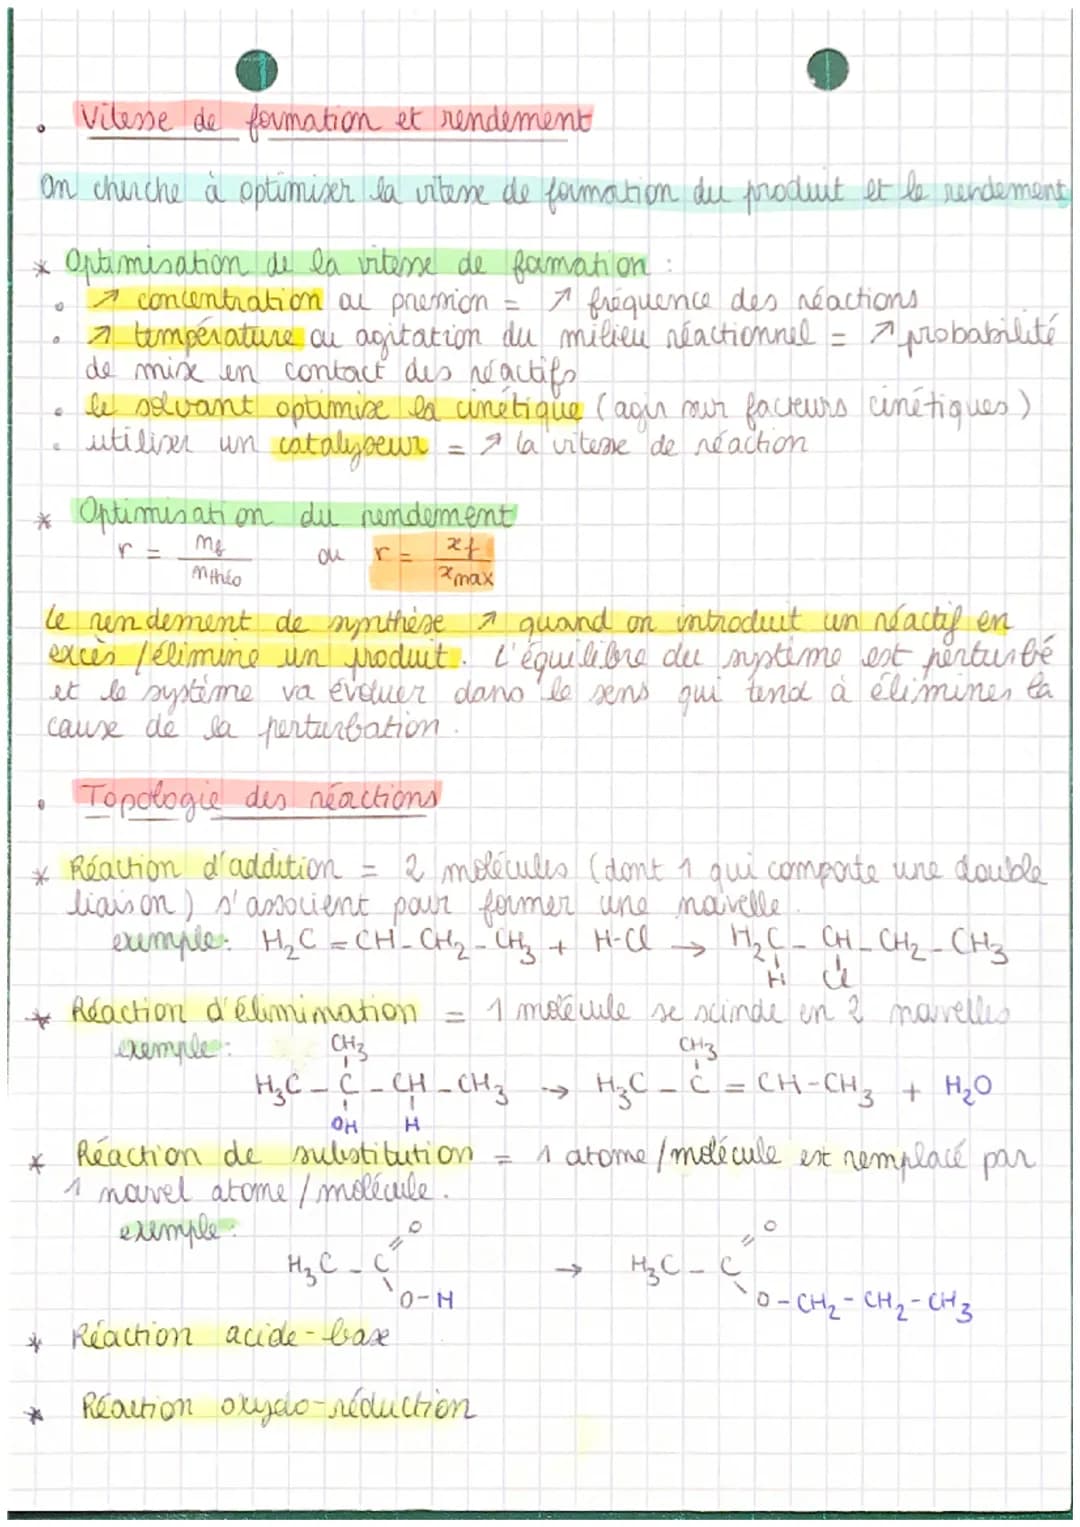 • Vitesse de formation et rendement
On cherche à optimiser la vitesse de formation du produit et le rendement
* Optimisation de la vitesse de formation :
• ↗ concentration ou pression = ↗ fréquence des réactions
• ↗ température ou agitation du milieu réactionnel = ↗ probabilité
de mise en contact des réactifs
• le solvant optimise la cinétique (agir sur facteurs cinétiques)
• utiliser un catalyseur = ↗ la vitesse de réaction
* Optimisation du rendement
r = mf / mthéo ou r = xf / xmax
Le rendement de synthèse ↗ quand on introduit un réactif en
excès / élimine un produit. L'équilibre du système est perturbé
et le système va évoluer dans le sens qui tend à éliminer la
cause de la perturbation.
• Topologie des réactions
* Réaction d'addition = 2 molécules (dont 1 qui comporte une double
liaison) s'associent pour former une nouvelle.
exemple: H₂C = CH - CH₂ - CH₃ + H-Cl → H₂C - CH - CH₂ - CH₃
H Cl
* Réaction d'élimination = 1 molécule se scinde en 2 nouvelles
exemple: CH₃ CH₃
H₃C - C - CH - CH₃ → H₃C - C = CH - CH₃ + H₂O
OH H
* Réaction de substitution = 1 atome / molécule est remplacé par
1 nouvel atome / molécule.
exemple: O O
H₃C - C → H₃C - C
O - H O - CH₂ - CH₂ - CH₃
* Réaction acide-base
* Réaction oxydo-réduction